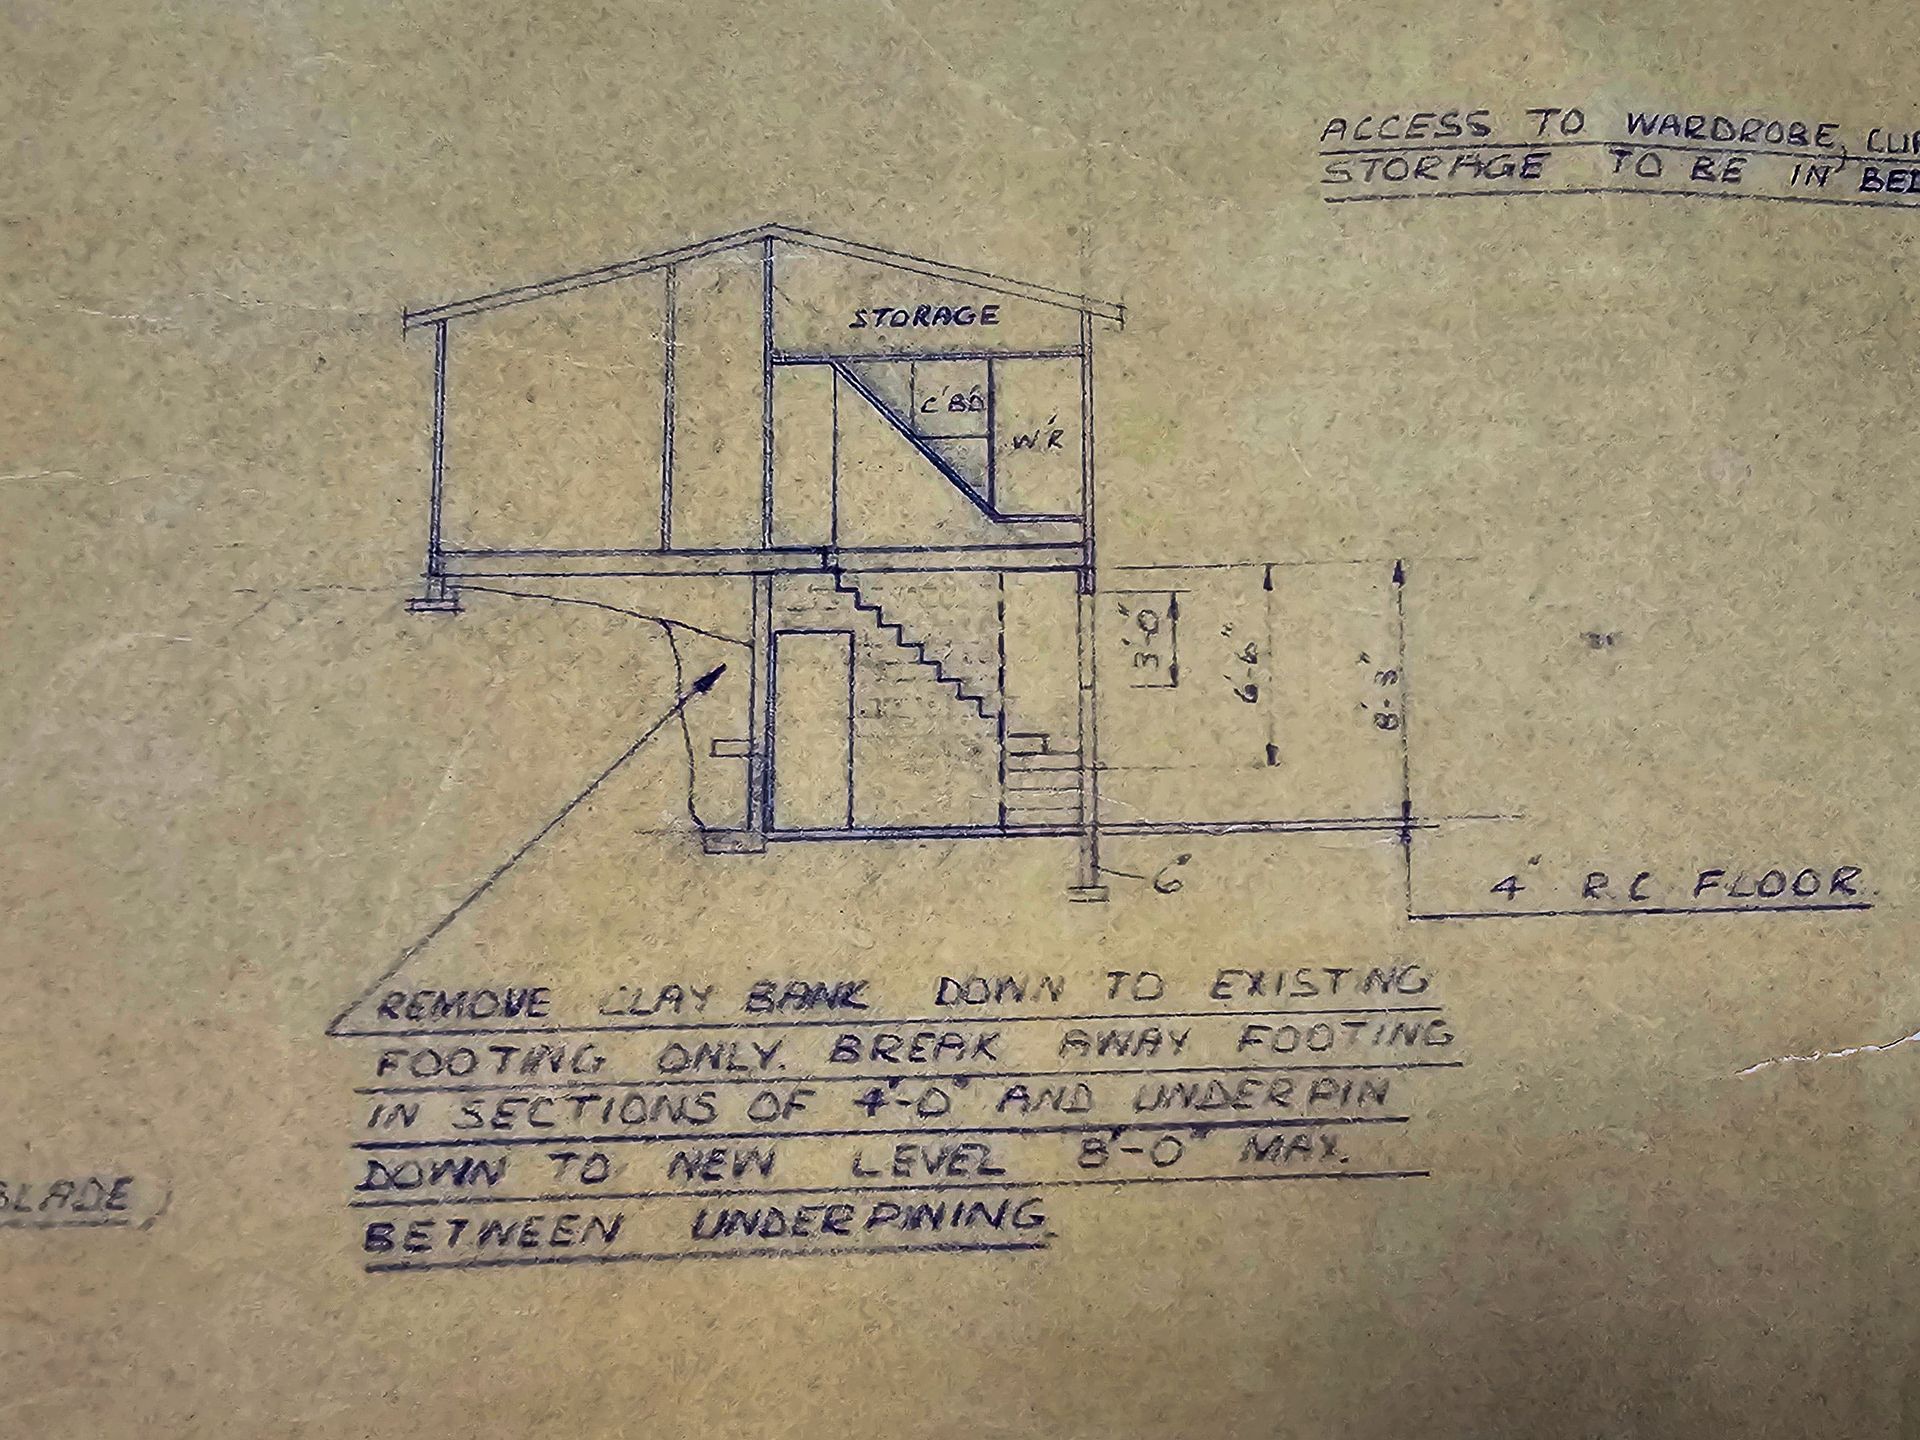 ACCESS TO WARDROBE,
STORAGE TO BE IN
STORAGE
C'B'D
W'R
3'-0"
6'-6"
8'-3"
6"
4" R.C FLOOR.
REMOVE CLAY BANK DOWN TO EXISTING
FOOTING ONLY. BREAK AWAY FOOTING
IN SECTIONS OF 4'-0" AND UNDERPIN
DOWN TO NEW LEVEL 8'-0" MAX.
BETWEEN UNDERPINING.